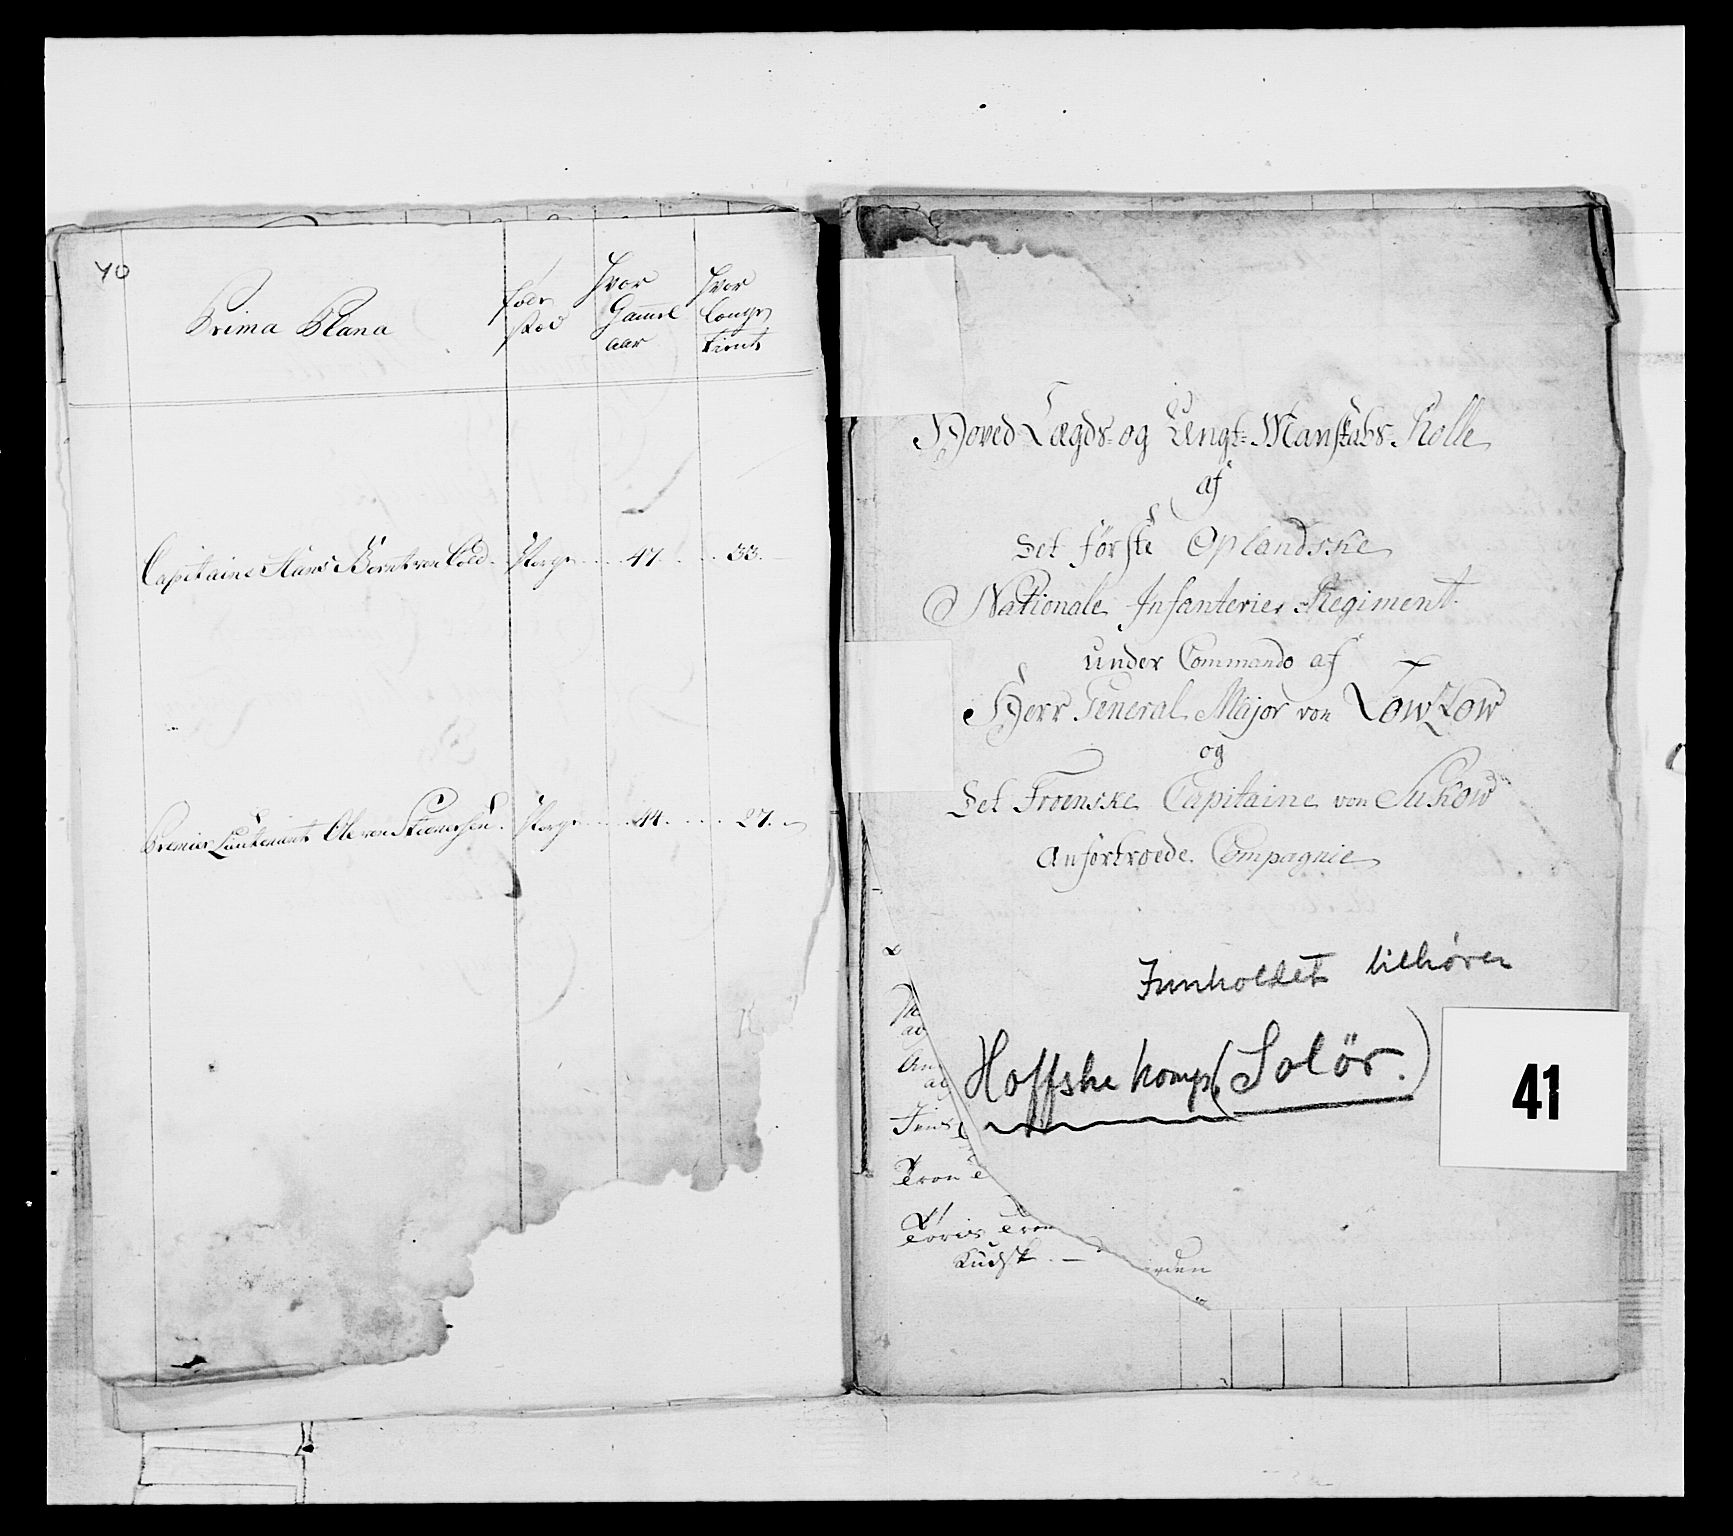 40
Prima Plana
føde
stæd
hvor
Gammel
aar
hvor
længe
tient
Capitaine Hans Berntvon Cold. Norge 47. 33.
Premier Lieutenant Ole von Steenersen. Norge 44. 27.
Hoved-Lægds- og Ungt-Manskabs-Rolle
af
Det første Oplandske
Nationale Infanterie Regiment
under Commando af
Herr General Major von Lowzow
og
Det Troenske Capitaine von Sukow
Anfortroede Compagnie
Innholdet tilhører
Hoffske komp. (Solör.)
41
Tron
Kudsk